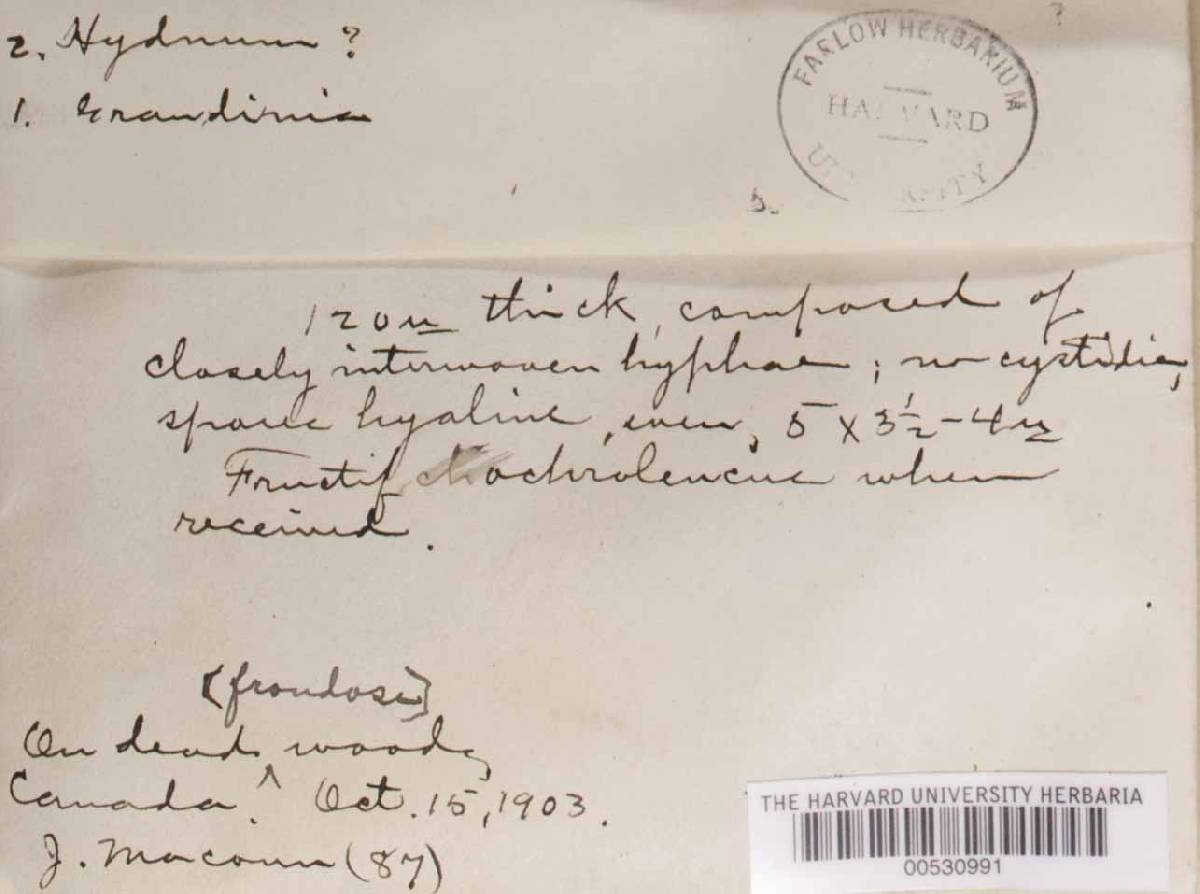 2. Hydnum ?
1. Grandinia
?
FARLOW HERBARIUM
HARVARD
UNIVERSITY
120u thick, composed of
closely interwoven hyphae ; no cystidia,
spores hyaline, even, 5 x 3½-4u
Fructif ochroleucus when
received.
[frondose]
On dead ^ wood,
Canada. Oct. 15, 1903.
J. Macoun (87)
THE HARVARD UNIVERSITY HERBARIA
00530991